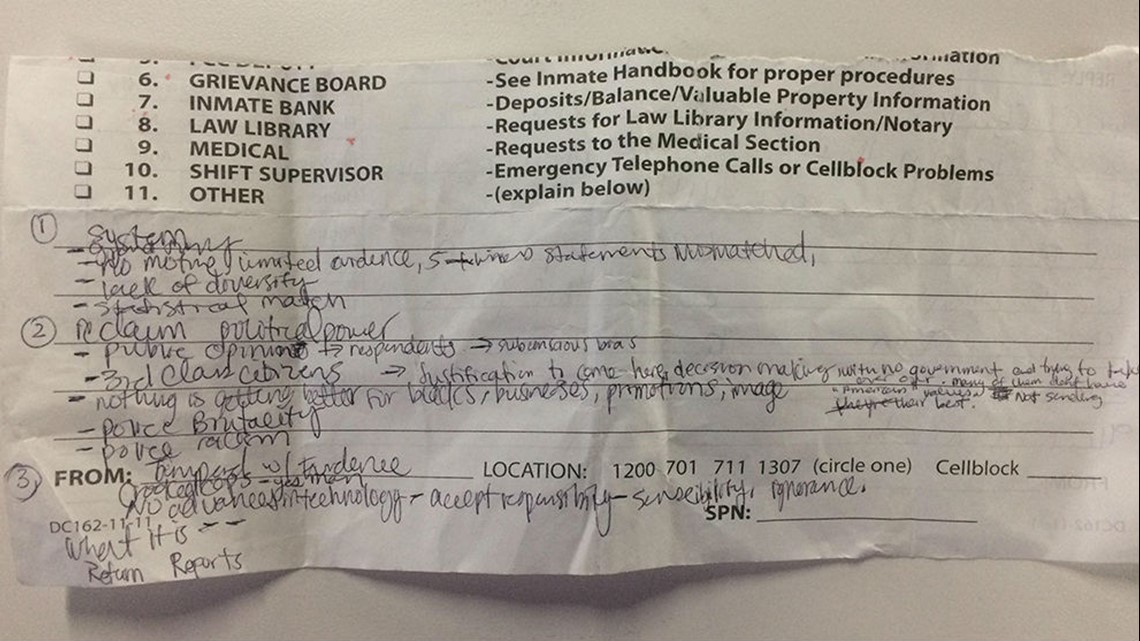 6. GRIEVANCE BOARD -See Inmate Handbook for proper procedures
7. INMATE BANK -Deposits/Balance/Valuable Property Information
8. LAW LIBRARY -Requests for Law Library Information/Notary
9. MEDICAL -Requests to the Medical Section
10. SHIFT SUPERVISOR -Emergency Telephone Calls or Cellblock Problems
11. OTHER -(explain below)
① System
- No motive, limited evidence, 5 statements Mismatched,
- lack of diversity
- statistical match
② reclaim political power
- public opinion → respondents → subconscious bias
- 3rd Class Citizens → Justification to come here, decision making with no government and trying to
many of them don't have
"American" Not sending
their best.
- nothing is getting better for blacks, businesses, promotions, image
- police Brutality
- police racism
③ FROM: Tampered w/ Evidence LOCATION: 1200 701 711 1307 (circle one) Cellblock
Crooked cops - yes man
No advances in technology - accept responsibility - ignorance.
SPN:
DC162-11-11
What it is --
Return Reports